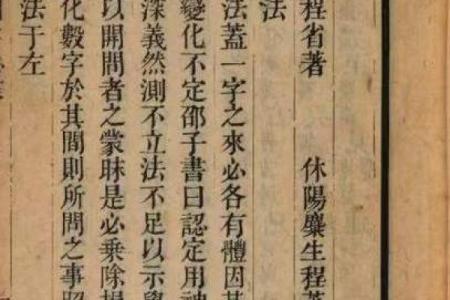 程省著 休陽麋生程
法
法蓋一字之來必各有體因其
變化不定邵子書曰認定用神
深義然測不立法不足以示學
以開問者之蒙昧是必乘除損
化數字於其間則所問之事
法于左